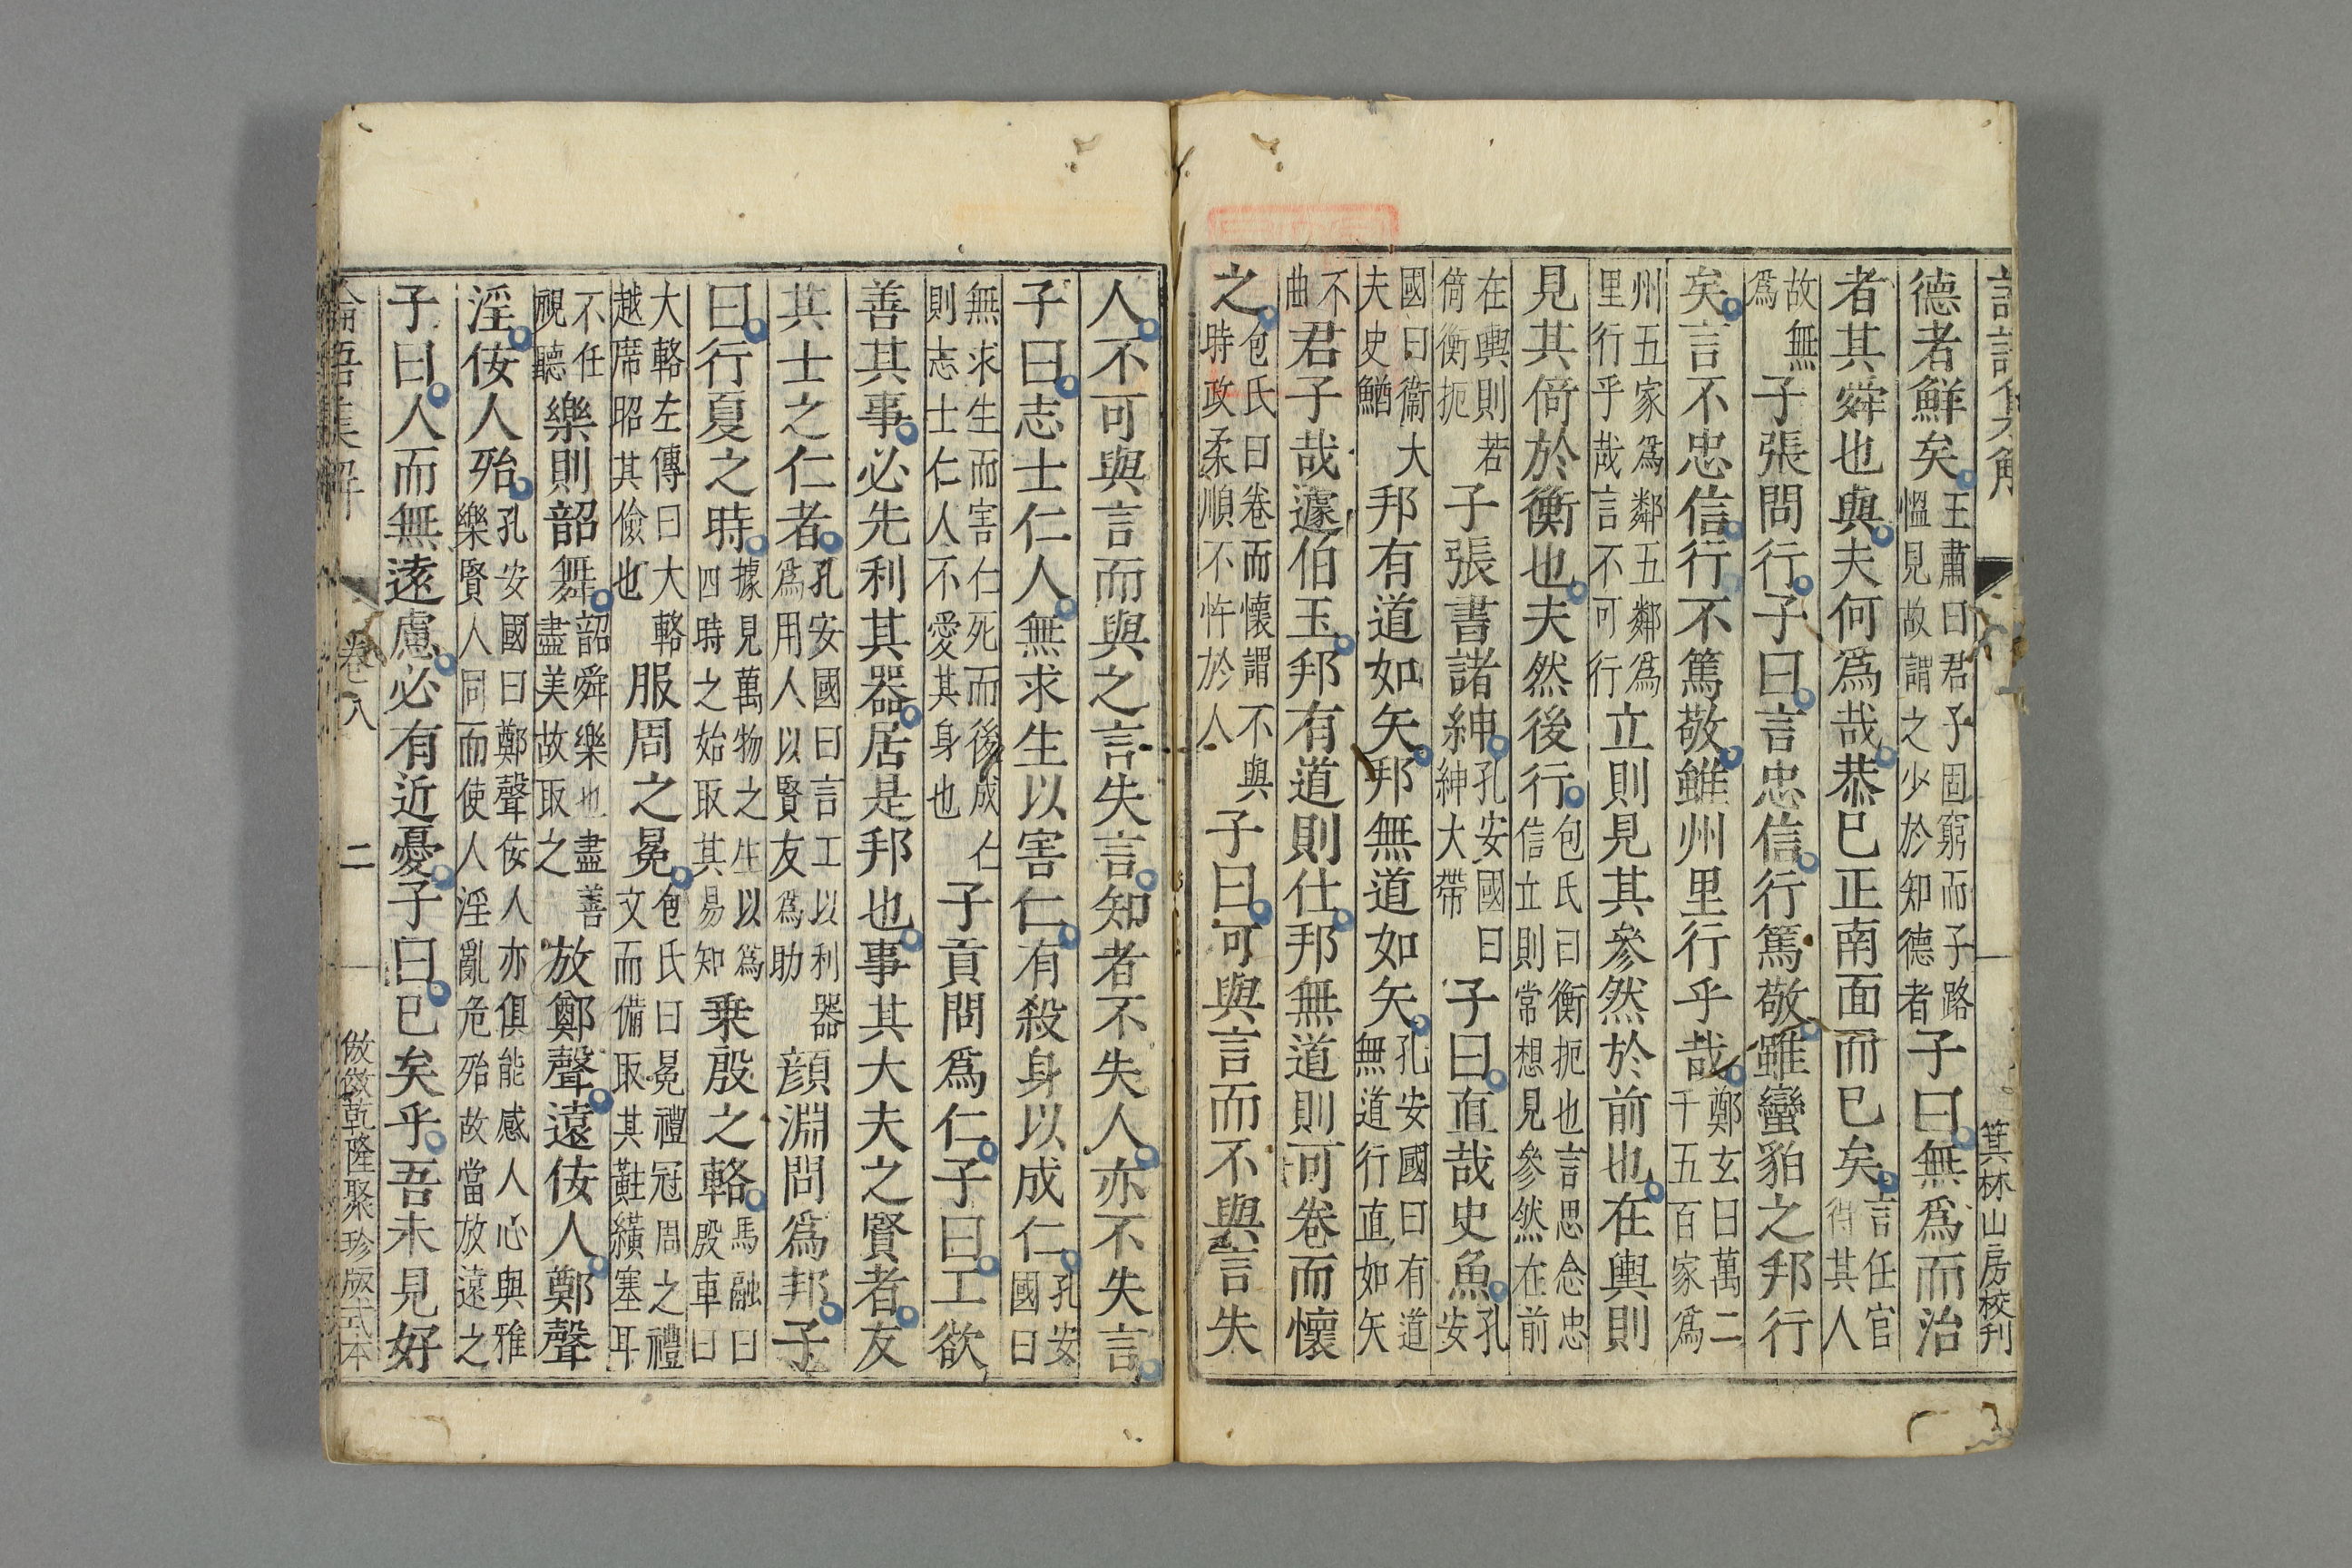 論語集解 箕林山房校刊
德者鮮矣王肅曰君子固窮而子路慍見故謂之少於知德者子曰無爲而治
者其舜也與夫何爲哉恭已正南面而已矣言任官得其人
故無爲子張問行子曰言忠信行篤敬雖蠻貊之邦行
矣言不忠信行不篤敬雖州里行乎哉鄭玄曰萬二千五百家爲
州五家爲鄰五鄰爲里行乎哉言不可行立則見其參然於前也在輿則
見其倚於衡也夫然後行包氏曰衡扼也言思念忠信立則常想見參然在前
在輿則若倚衡扼子張書諸紳孔安國曰紳大帶子曰直哉史魚孔安
國曰衞大夫史鰌邦有道如矢邦無道如矢孔安國曰有道無道行直如矢
不曲君子哉蘧伯玉邦有道則仕邦無道則可卷而懷
之包氏曰卷而懷謂不與時政柔順不忤於人子曰可與言而不與言失
人不可與言而與之言失言知者不失人亦不失言
子曰志士仁人無求生以害仁有殺身以成仁孔安國曰
無求生而害仁死而後成仁則志士仁人不愛其身也子貢問爲仁子曰工欲
善其事必先利其器居是邦也事其大夫之賢者友
其士之仁者孔安國曰言工以利器爲用人以賢友爲助顏淵問爲邦子
曰行夏之時據見萬物之生以爲四時之始取其易知乗殷之輅馬融曰殷車曰
大輅左傳曰大輅越席昭其儉也服周之冕包氏曰冕禮冠周之禮文而備取其黈纊塞耳
不任視聽樂則韶舞韶舜樂也盡善盡美故取之放鄭聲遠佞人鄭聲
淫佞人殆孔安國曰鄭聲佞人亦俱能感人心與雅樂賢人同而使人淫亂危殆故當放遠之
子曰人而無遠慮必有近憂子曰已矣乎吾未見好
論語集解 卷八 二 倣乾隆聚珍版式本